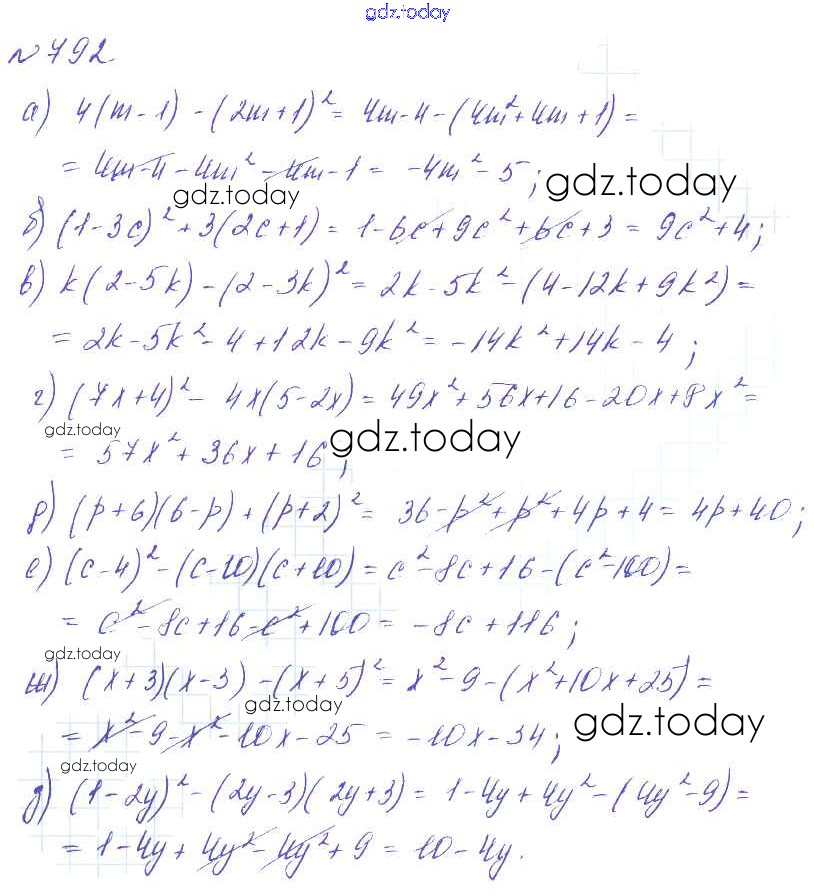 gdz.today
№ 792
а) 4(m-1) - (2m+1)² = 4m-4-(4m²+4m+1) =
= 4m-4-4m²-4m-1 = -4m²-5;
gdz.today
gdz.today
б) (1-3c)²+3(2c+1) = 1-6c+9c²+6c+3 = 9c²+4;
в) k(2-5k)-(2-3k)² = 2k-5k²-(4-12k+9k²) =
= 2k-5k²-4+12k-9k² = -14k²+14k-4;
г) (7x+4)²- 4x(5-2x) = 49x²+56x+16-20x+8x² =
gdz.today
gdz.today
= 57x²+36x+16;
д) (p+6)(6-p)+(p+2)² = 36-p²+p²+4p+4 = 4p+40;
е) (c-4)²-(c-10)(c+10) = c²-8c+16-(c²-100) =
= c²-8c+16-c²+100 = -8c+116;
gdz.today
ж) (x+3)(x-3)-(x+5)² = x²-9-(x²+10x+25) =
gdz.today
gdz.today
= x²-9-x²-10x-25 = -10x-34;
gdz.today
з) (1-2y)²-(2y-3)(2y+3) = 1-4y+4y²-(4y²-9) =
= 1-4y+4y²-4y²+9 = 10-4y.